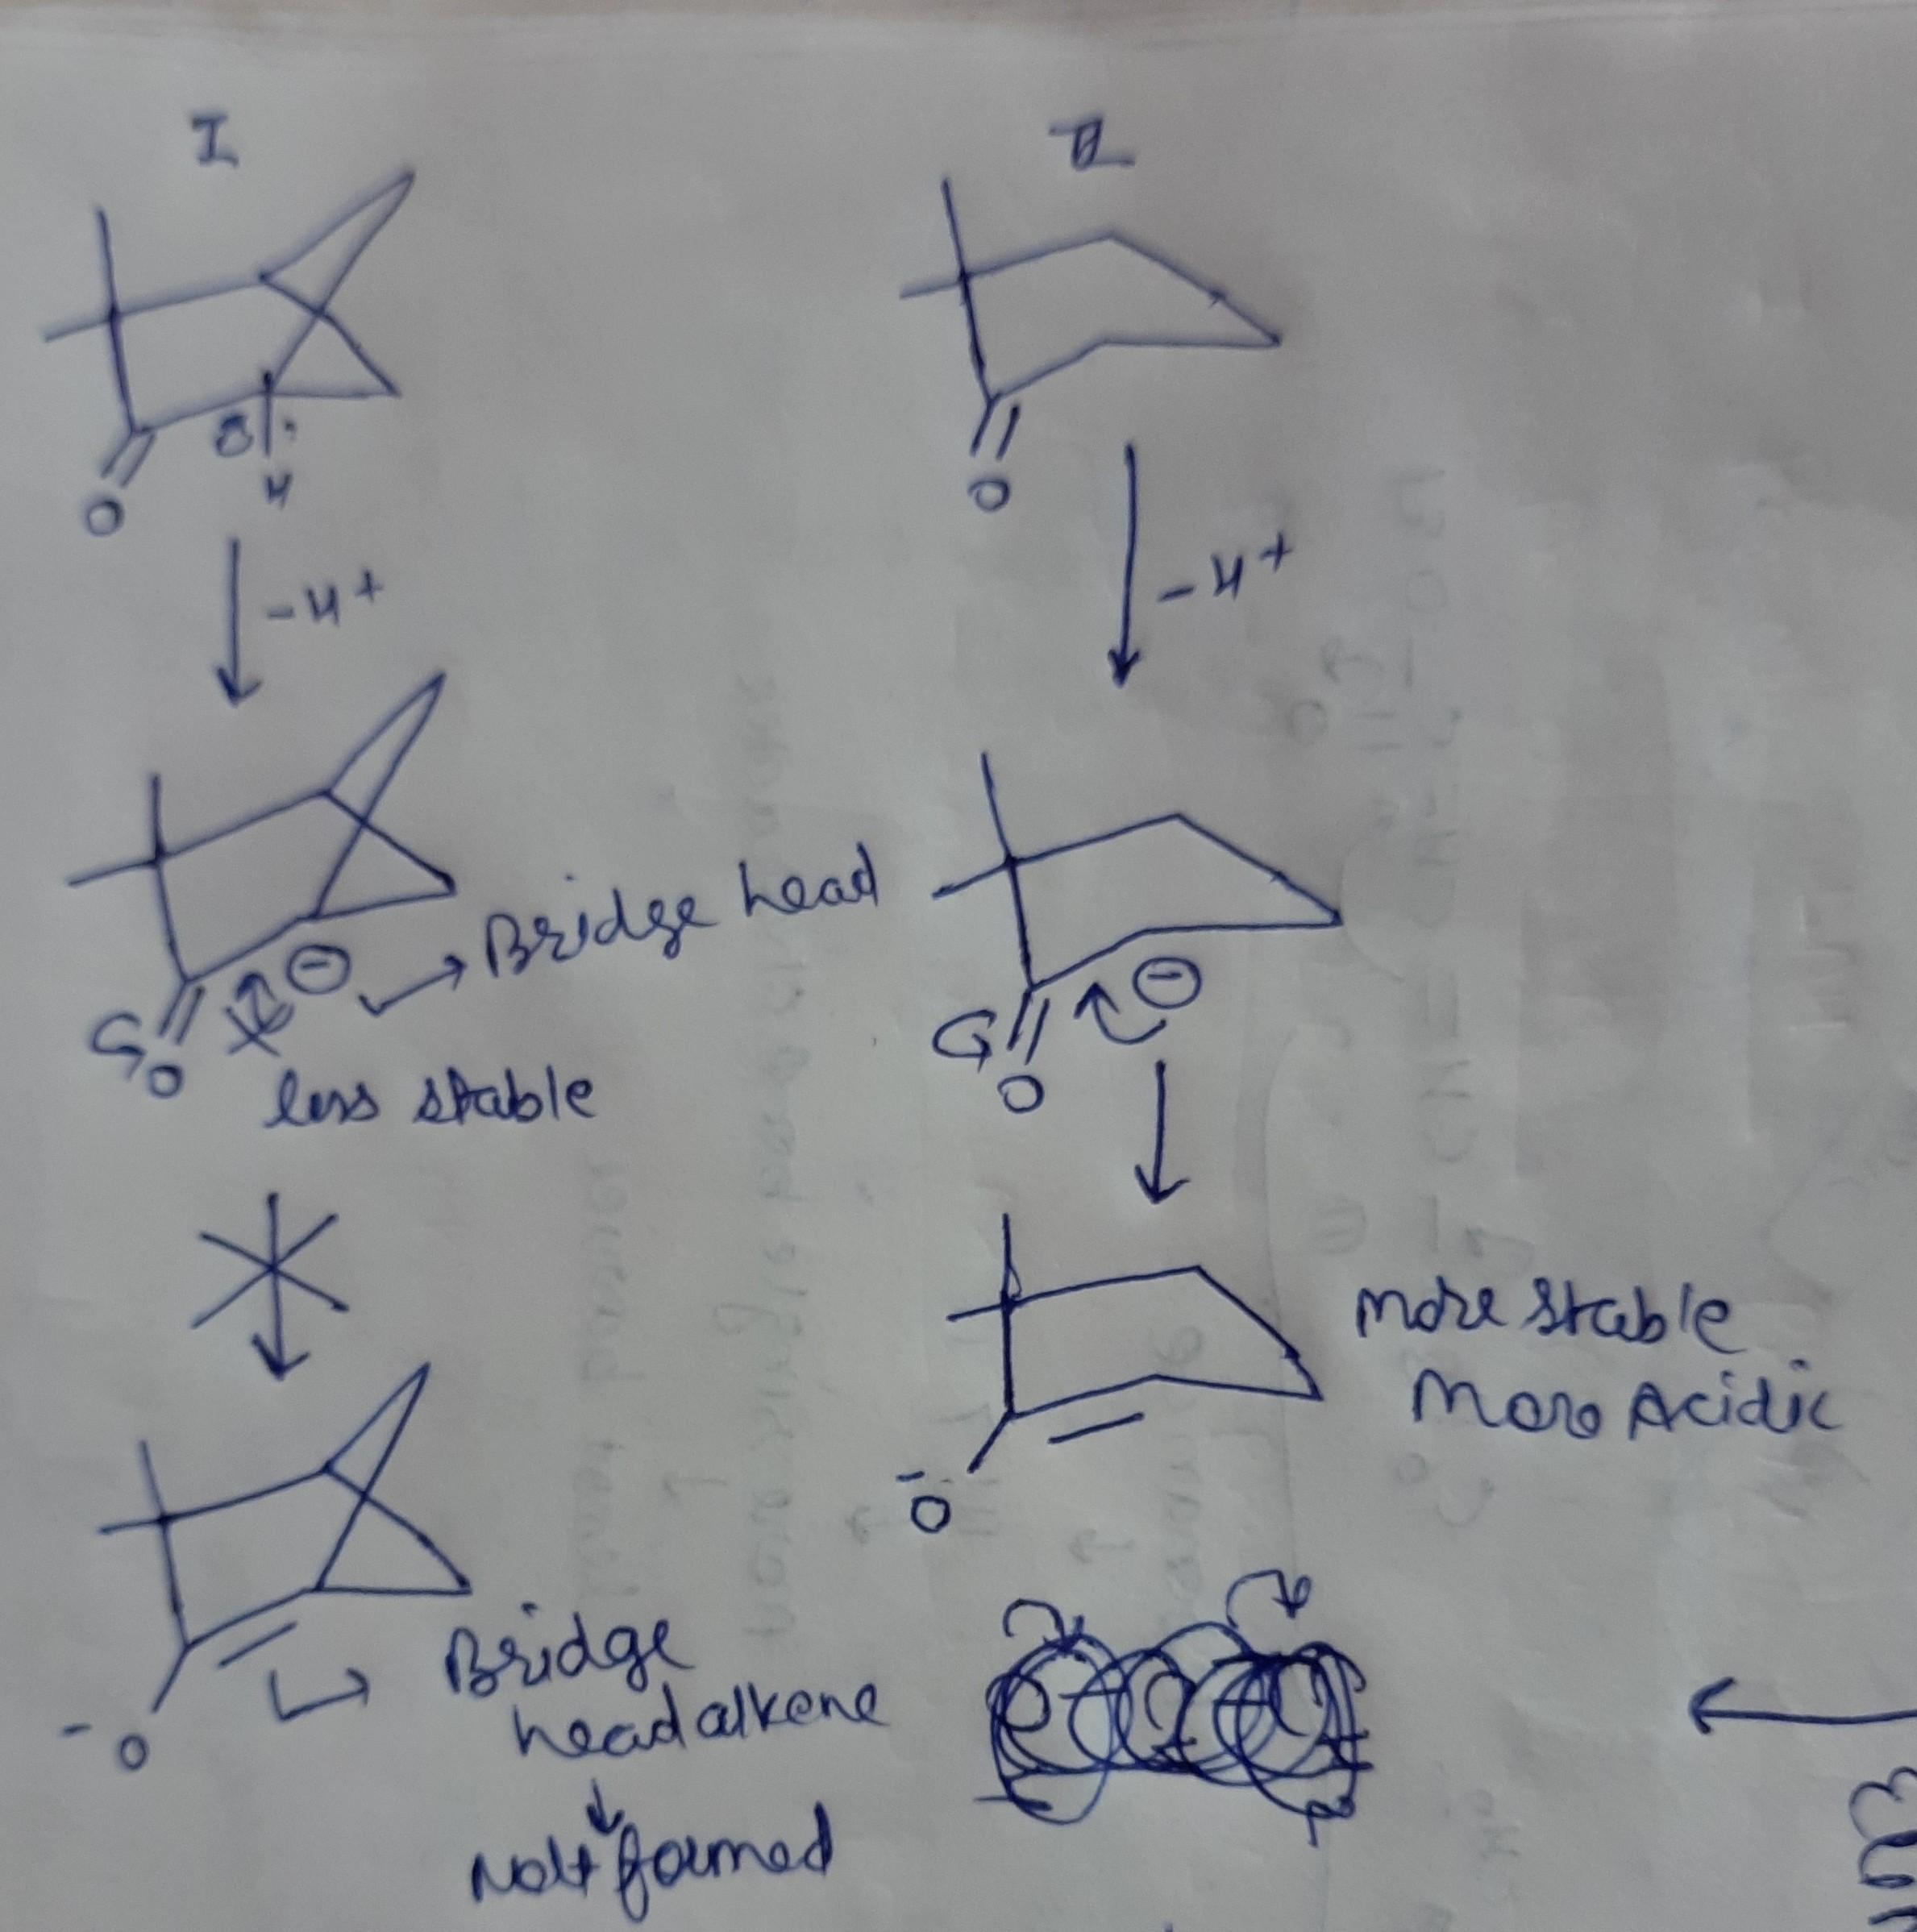 I
II
O
H
O
-H+
-H+
⊖
Bridge head
O
less stable
⊖
O
more stable
More Acidic
-O
-O
Bridge
head alkene
Not formed